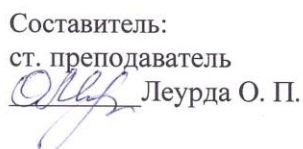 Составитель:
ст. преподаватель
Леурда О. П.